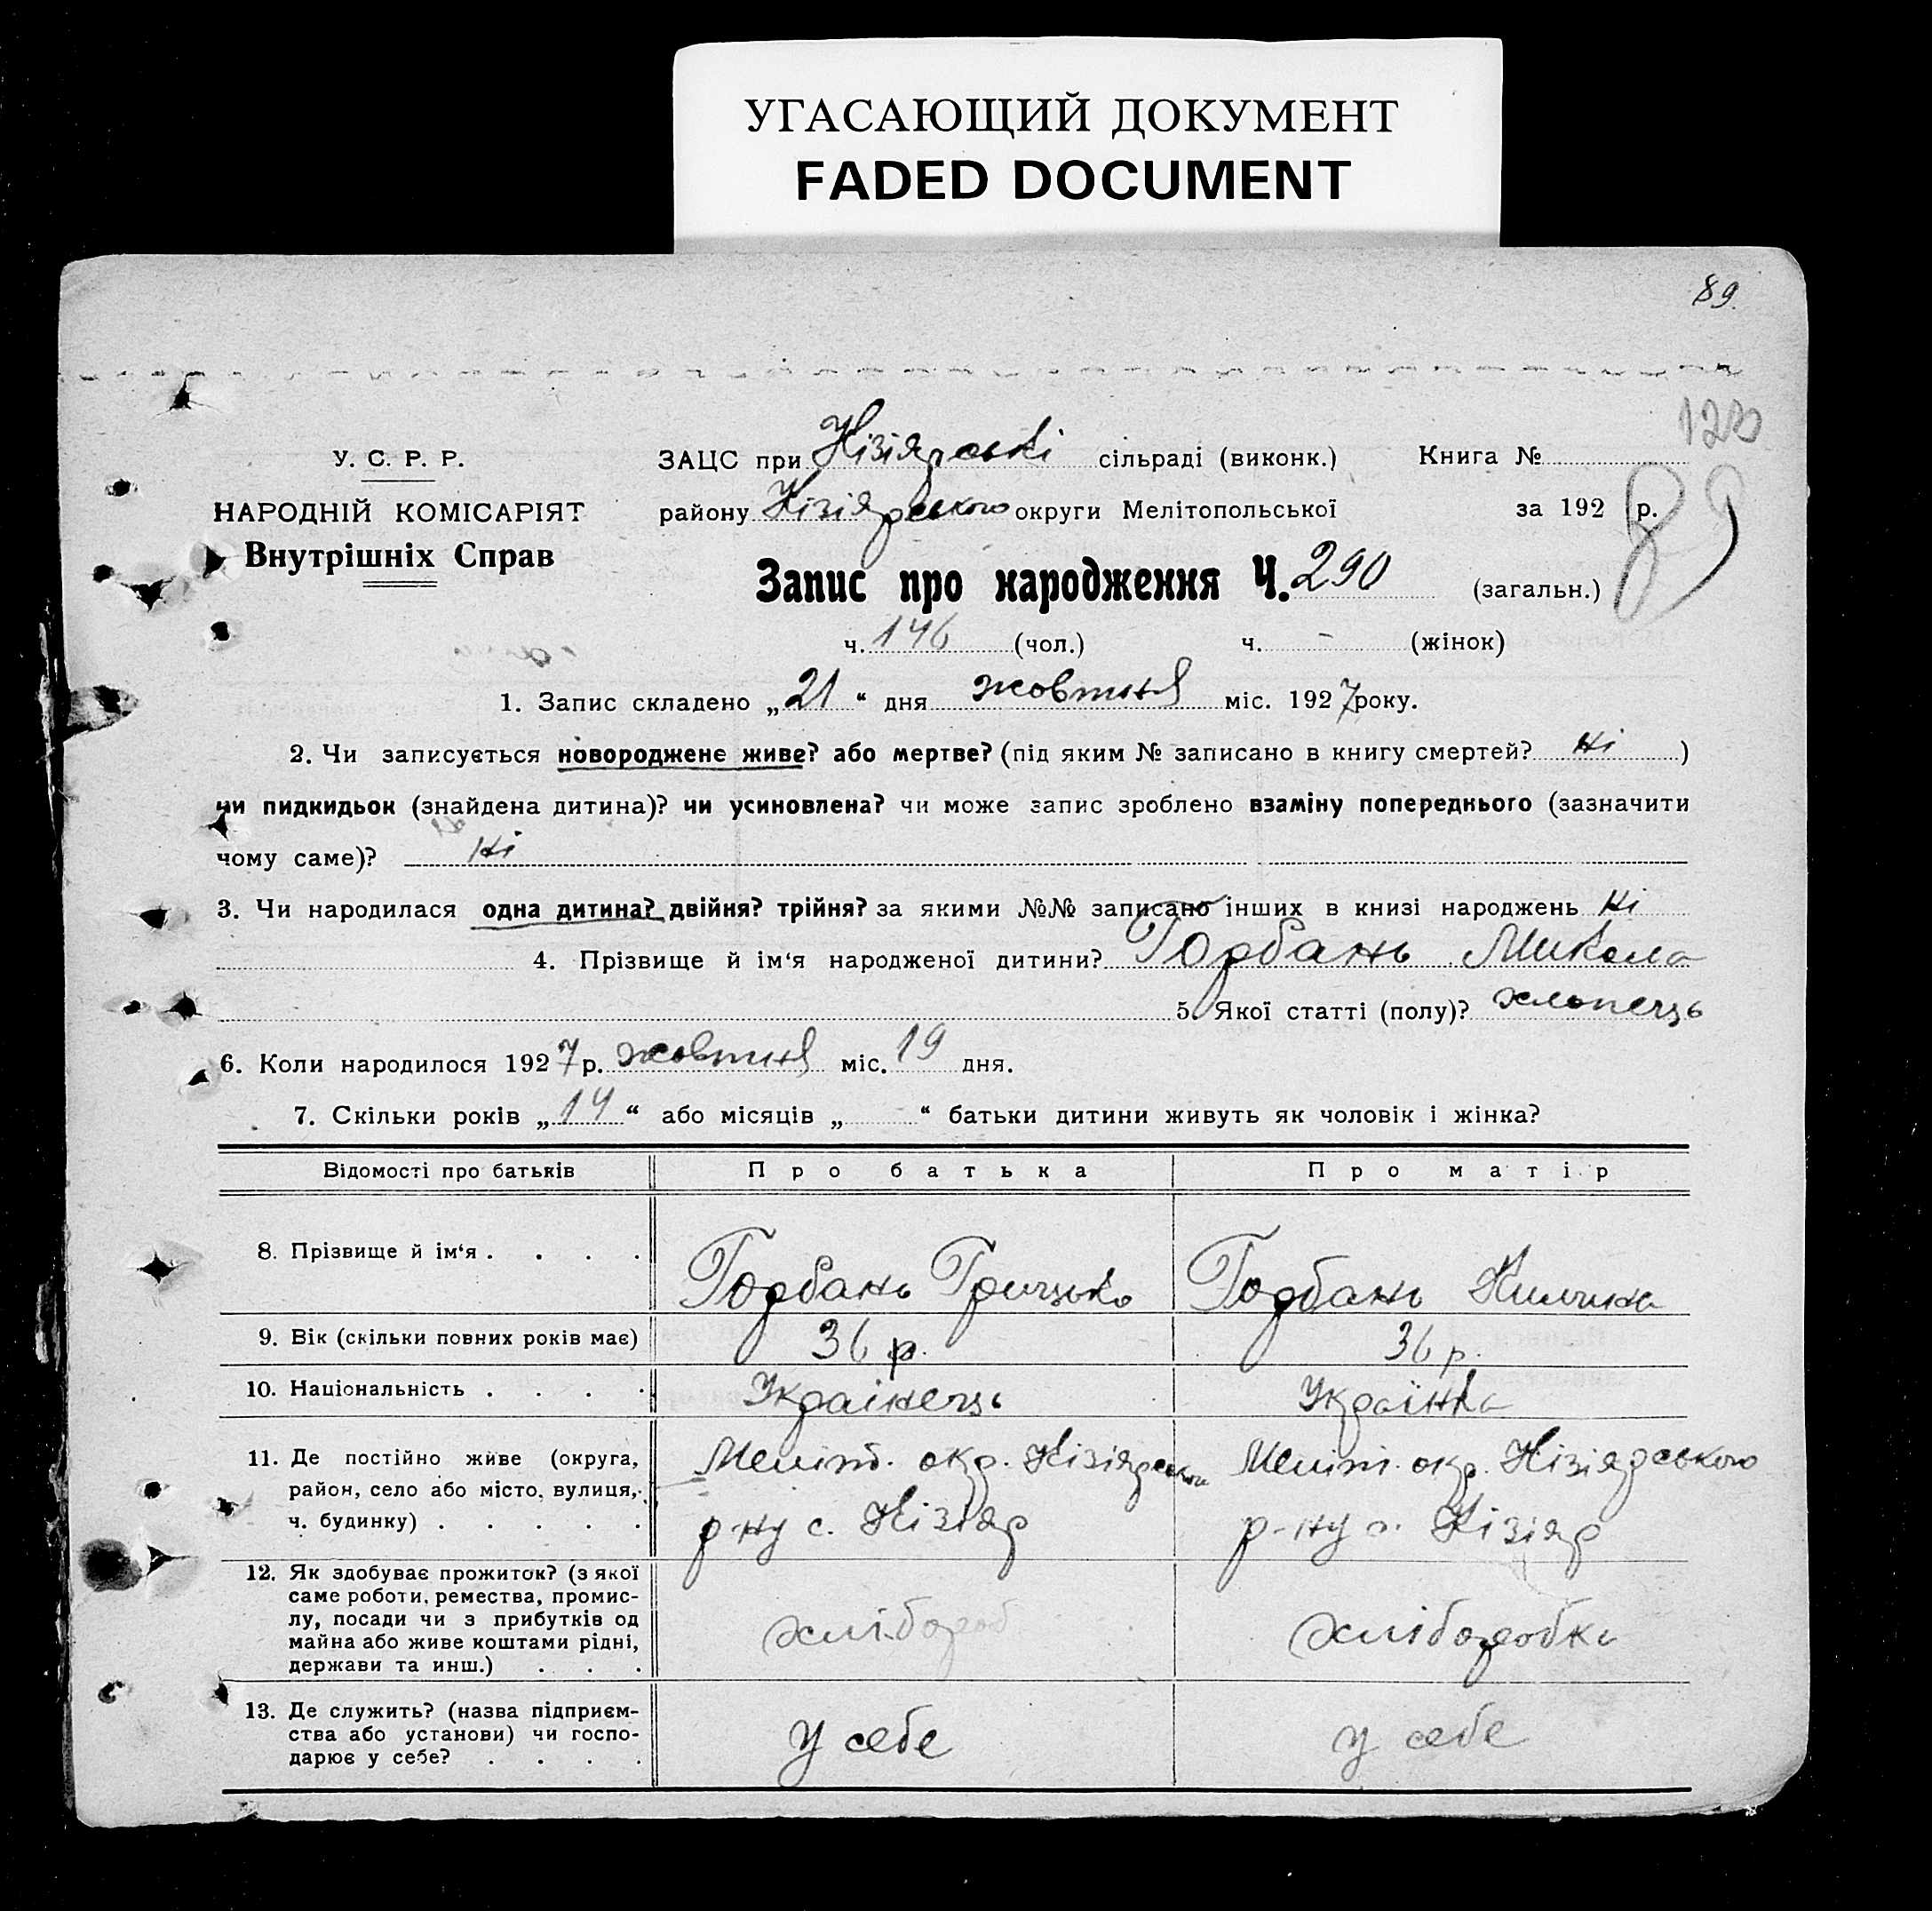 УГАСАЮЩИЙ ДОКУМЕНТ
FADED DOCUMENT
89.
У. С. Р. Р.
НАРОДНІЙ КОМІСАРІЯТ
Внутрішніх Справ
ЗАЦС при Кізіярські сільраді (виконк.) Книга №
району Кізіярського округи Мелітопольської за 192 р.
89
Запис про народження Ч. 290 (загальн.)
ч. 146 (чол.) ч. - (жінок)
1. Запис складено „21“ дня жовтня міс. 1927 року.
2. Чи записується новороджене живе? або мертве? (під яким № записано в книгу смертей? Ні)
чи пидкидьок (знайдена дитина)? чи усиновлена? чи може запис зроблено взаміну попереднього (зазначити
чому саме)? Ні
3. Чи народилася одна дитина? двійня? трійня? за якими №№ записано інших в книзі народжень Ні
4. Прізвище й ім‘я народженої дитини? Горбань Микола
5. Якої статті (полу)? хлопець
6. Коли народилося 1927 р. жовтня міс. 19 дня.
7. Скільки років „14“ або місяців „ “ батьки дитини живуть як чоловік і жінка?
Відомості про батьків Про батька Про матір
8. Прізвище й ім‘я . . . . Горбань Грицько Горбань Килина
9. Вік (скільки повних років має) 36 р. 36 р.
10. Національність . . . . Украінець Українка
11. Де постійно живе (округа, Меліт. окр. Кізіярського Меліт. окр. Кізіярського
район, село або місто, вулиця, р-ну с. Кізіяр р-ну с. Кізіяр
ч. будинку) . . . . .
12. Як здобуває прожиток? (з якої
саме роботи, ремества, промис-
лу, посади чи з прибутків од хлібороб хліборобка
майна або живе коштами рідні,
держави та инш.) . . .
13. Де служить? (назва підприєм-
ства або установи) чи госпо- у себе у себе
дарює у себе? . . . .